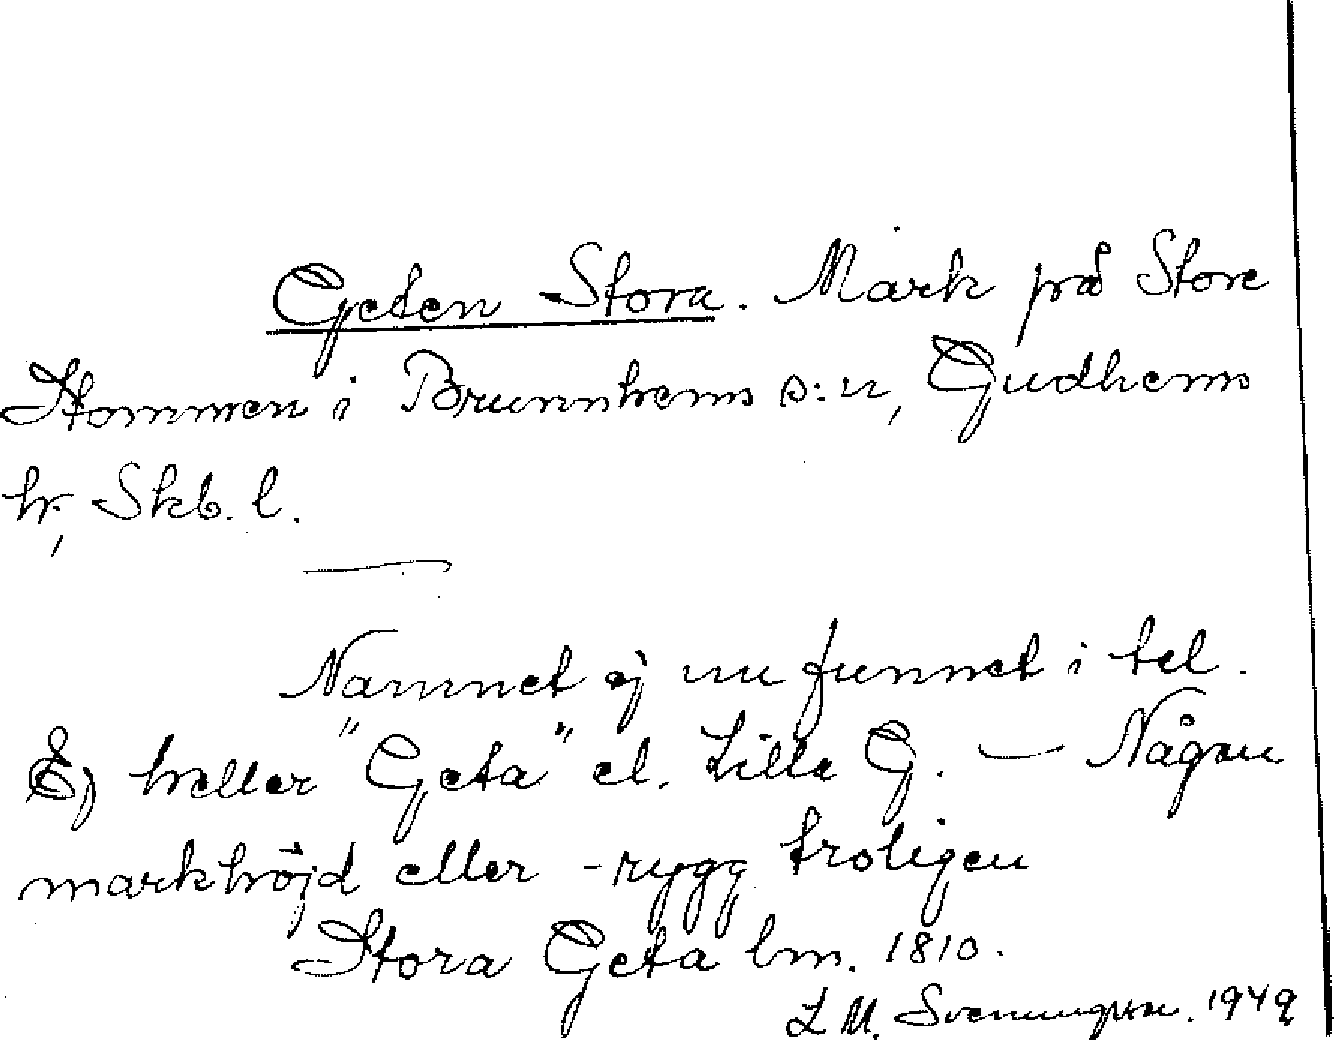 Geten Stora. Mark på Store
Stommen i Brunnhems s:n, Gudhems
hr, Skb. l.
Namnet ej nu funnet i tel.
Ej heller "Geta" el. Lilla G. — Någon
markhöjd eller -rygg troligen
Stora Geta lm. 1810.
L M. Svenungsson. 1949